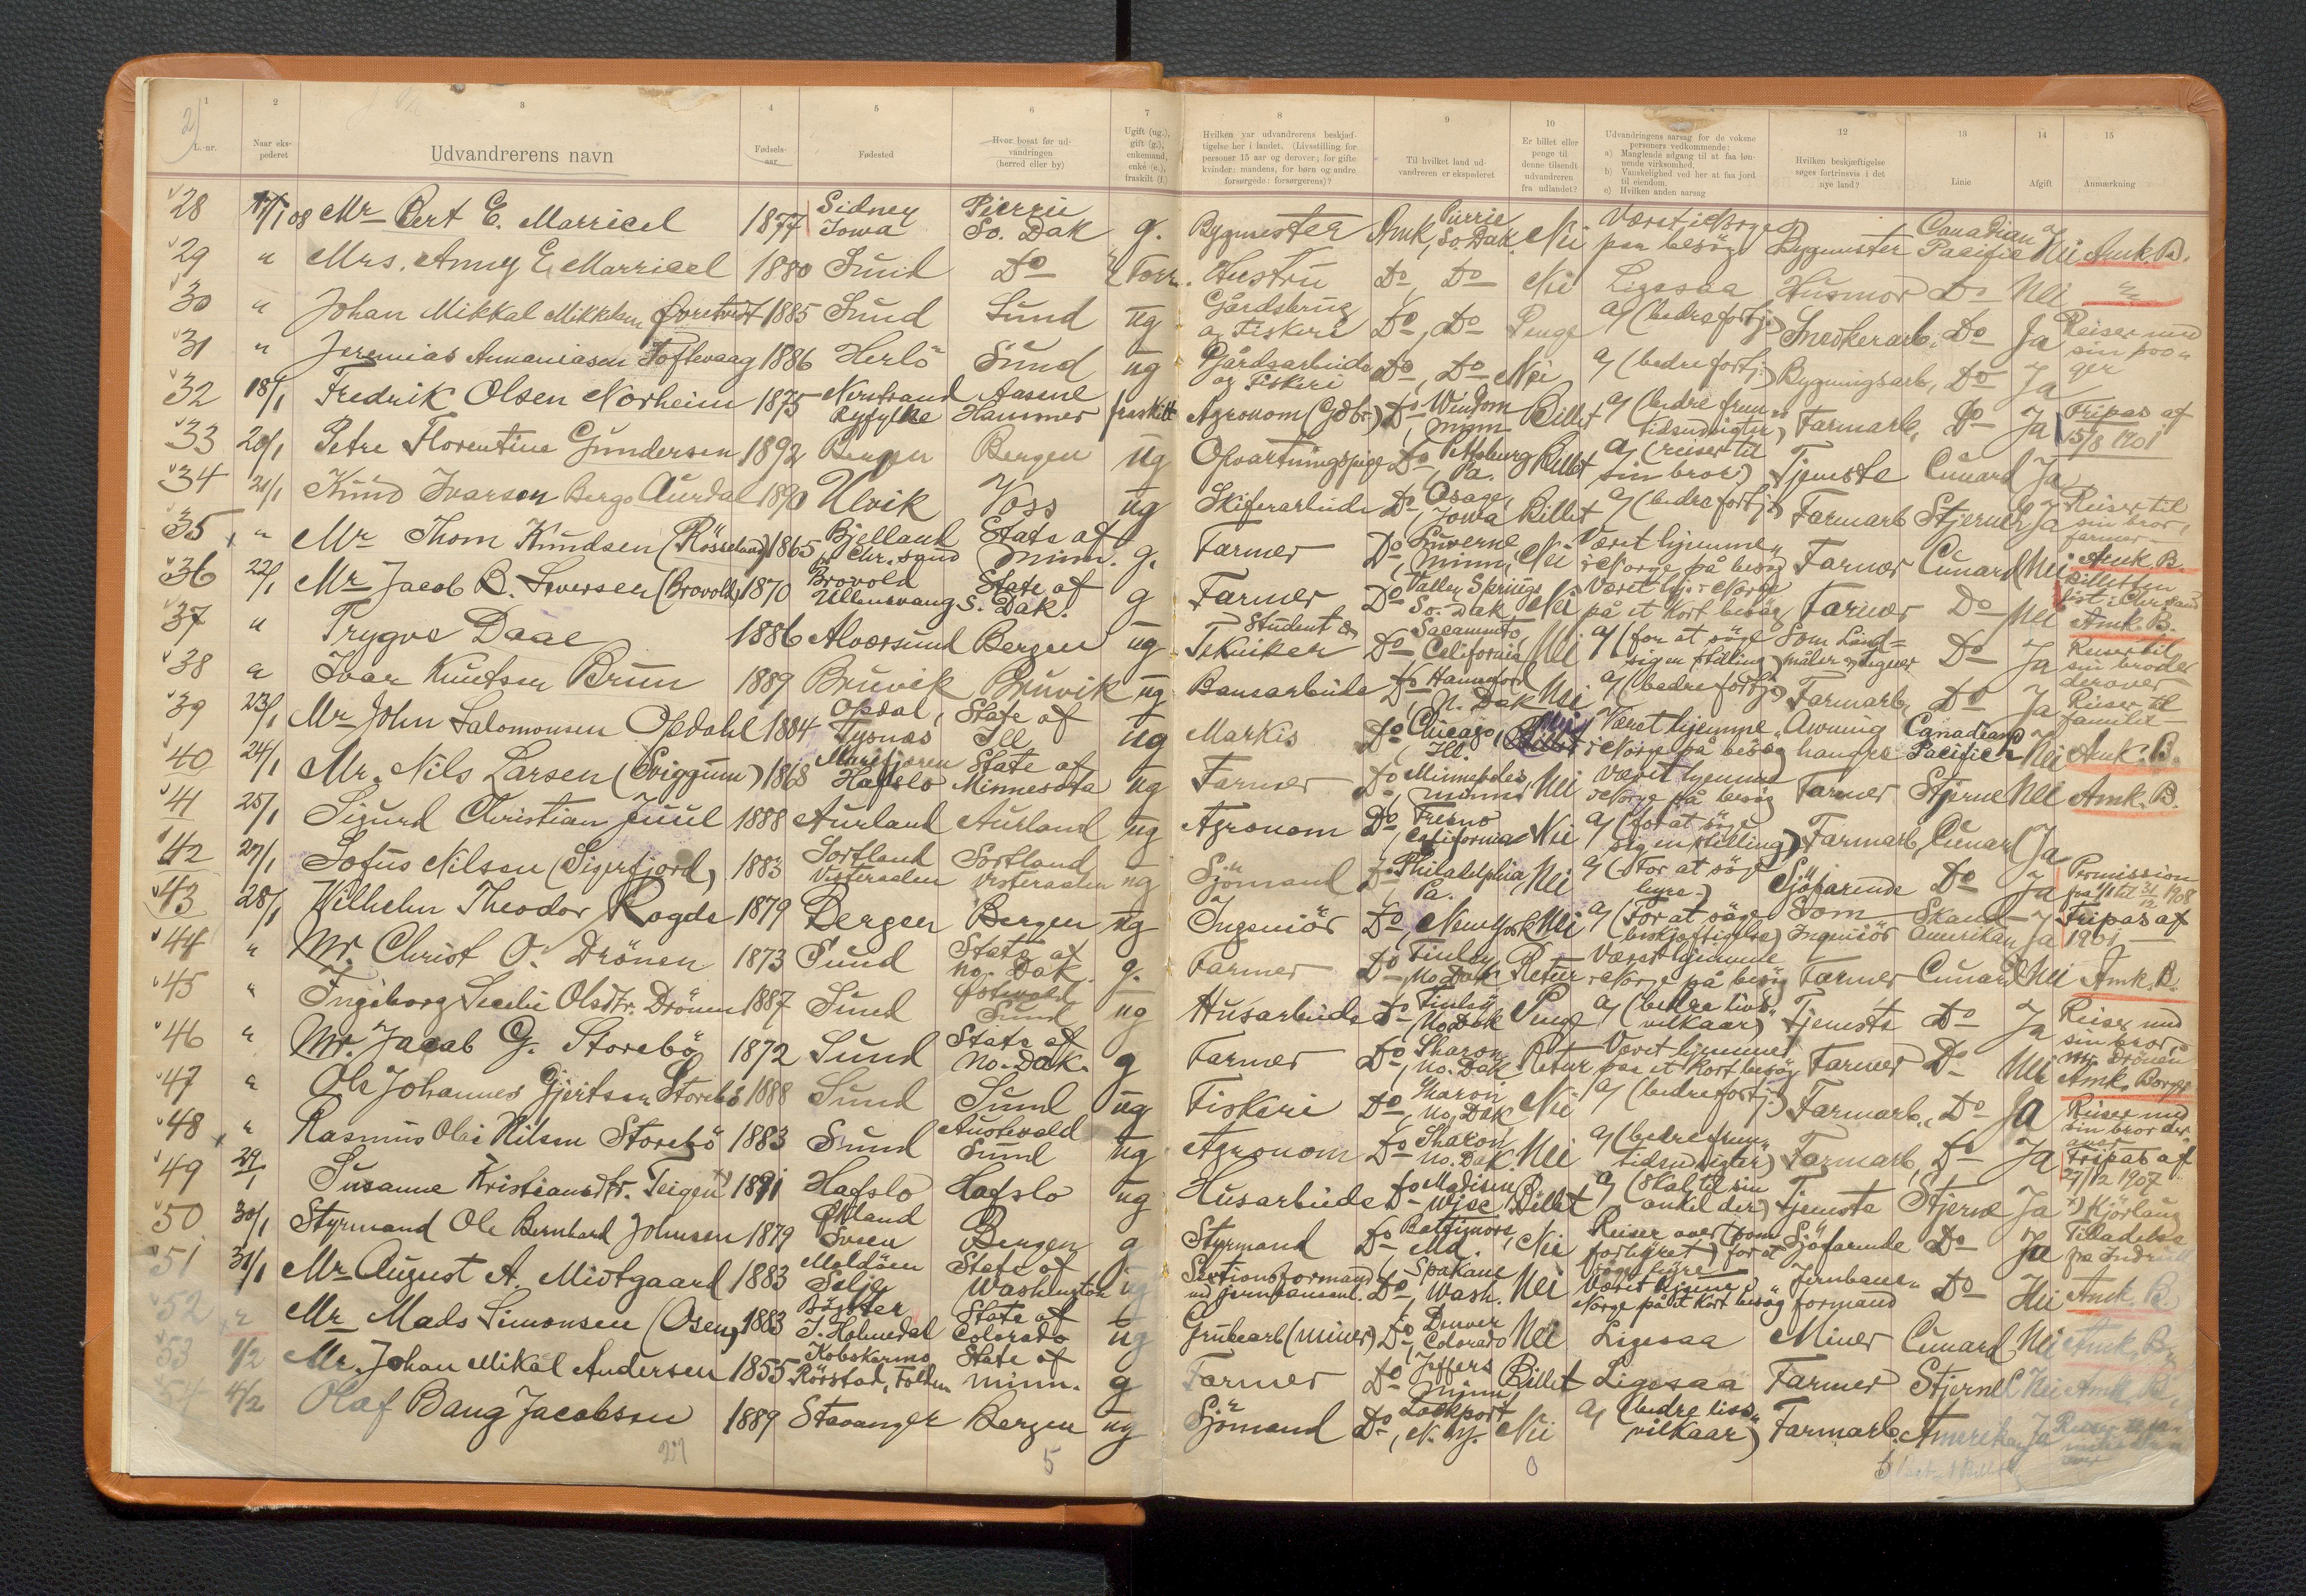 1 2 3 4 5 6 7 8 9 10 12 13 14 15
2)
L.-nr. Naar ekspederet Udvandrerens navn Fødselsaar Fødested Hvor bosat før udvandringen (herred eller by) Ugift (ug.), gift (g.), enkemand, enke (e.), fraskilt (f.) Hvilken var udvandrerens beskjæftigelse her i landet. (Livsstilling for personer 15 aar og derover; for gifte kvinder: mandens, for børn og andre forsørgede: forsørgerens)? Til hvilket land udvandreren er ekspederet Er billet eller penge til denne tilsendt udvandreren fra udlandet? Udvandringens aarsag for de voksne personers vedkommende: a) Manglende adgang til at faa lønnende virksomhed. b) Vanskelighed ved her at faa jord til eiendom. c) Hvilken anden aarsag Hvilken beskjæftigelse søges fortrinsvis i det nye land? Linie Afgift Anmærkning
28 17/1 08 Mr Bert E. Marricel 1877 Sidney Iowa Pierrie So. Dak g. Bygmester Amk, Pierrie So. Dak. Nei Været i Norge paa besøg Bygmester Canadian Pacific Nei Amk. B.
29 " Mrs. Anny E. Marricel 1880 Sund Do Hustru Do, Do Nei Ligesaa Husmor Do Nei "
30 " Johan Mikkal Mikkelsen 1885 Sund Sund ug Gårdsbrug og Fiskeri Do, Do Penge a) (bedre fortj.) Snedkerarb. Do Ja Reiser med sin
31 " Jeremias Annaniasen Toftevaag 1886 Herlö Sund ug Gårdsarbeide og Fiskeri Do, Do Nei a) (bedre fortj.) Bygningsarb, Do Ja
32 18/1 Fredrik Olsen Norheim 1875 Nerstrand Ryfylke Aasene Hammer fraskilt Agronom (Gdbr.) Do, Windom Minn Billet a) (bedre fremtidsudsigter) Farmarb, Do Ja Fripas af 15/8 1901
33 20/1 Petre Florentine Gundersen 1892 Bergen Bergen ug Opvartningspige Do, Pittsburg Pa. Billet a) (reiser til sin bror) Tjeneste Cunard Ja
34 21/1 Knud Ivarsen Berge Aurdal 1890 Ulvik Voss ug Skiferarbeide Do, Osage, Iowa Billet a) (bedre fortj.) Farmarb Stjerne Ja Reiser til sin bror, farmer
35 " Mr Thom Knudsen (Rösseland) 1865 Bjelland pr Chr.sand State af Minn. g. Farmer Do, Luverne Minn, Nei Været hjemme i Norge på besög Farmer Cunard Nei Amk. B.
36 22/1 Mr Jacob B. Iversen (Brovold) 1870 Brovold Ullensvang State af S. Dak. g Farmer Do Valley Springs So. Dak Nei Været hj. i Norge på et kort besög Farmer Do Nei Amk. B.
37 " Trygve Daae 1886 Alversund Bergen ug Student & Tekniker Do Sacamento, California Nei a) (for at söge sig en stilling) Som Landmåler og tegner Do Ja Reiser til sin broder derover
38 " Ivar Knutsen Brun 1889 Bruvik Bruvik ug Banearbeide Do Hannaford, N. Dak Nei a) (bedre fortj.) Farmarb, Do Ja Reiser til familie
39 23/1 Mr John Salomonsen Opdahl 1884 Opdal, Tysnæs State af Ill ug Markis Do Chicago, Ill. Været hjemme i Norge på besøg Awning hanger Canadian Pacific Nei Amk. B.
40 24/1 Mr. Nils Larsen (Sviggum) 1868 Marifjøren Hafslo State af Minnesota ug Farmer Do Minneapoles, Minn. Nei Været hjemme i Norge på besøg Farmer Stjerne Nei Amk. B.
41 25/1 Sigurd Christian Juul 1888 Aurland Aurland ug Agronom Do Fresno California Nei a) (for at söge sig en stilling) Farmarb, Cunard Ja
42 27/1 Sofus Nilsen (Sigerfjord) 1883 Sortland Vesteraalen Sortland Vesteraalen ug Sjömand Do Philadelphia Pa. Nei a) (For at söge hyre) Sjöfarende Do Ja Permission fra 1/1 til 31/12 1908
43 28/1 Wilhelm Theodor Rogde 1879 Bergen Bergen ug Ingeniör Do, New York Nei a) (For at söge beskjæftigelse) Som Ingeniör Skand. Amerika Ja Fripas af 1901
44 " Mr. Christ O. Drönen 1873 Sund State af No. Dak. g. Farmer Do Finley No Dak Retur Været hjemme i Norge på besög Farmer Cunard Nei Amk. B.
45 " Ingeborg Secilie Olsdtr. Drönen 1887 Sund Østevold Sund ug Husarbeide Do Finley No Dak Penge a) (bedre livsvilkaar) Tjeneste Do Ja Reiser med sin bror, Mr. Drönen
46 " Mr. Jacob G. Storebö 1872 Sund State af No. Dak. g Farmer Do, Sharon No. Dak Retur Været hjemme paa et kort besög Farmer Do Nei Amk. Borger
47 " Ole Johannes Gjertsen Storebö 1888 Sund Sund ug Fiskeri Do, Sharon No. Dak Nei a) (bedre fortj.) Farmarb., Do Ja Reiser med sin bror
48 " Rasmus Olai Nilsen Storebö 1883 Sund Austevold Sund ug Agronom Do Sharon No. Dak. Nei a) (bedre fremtidsudsigter) Farmarb, Do Ja Fripas af 27/12 1907
49 29/1 Susanne Kristiansdtr. Teigen 1891 Hafslo Hafslo ug Husarbeide Do Madison Wise Billet a) (Skal til sin onkel der) Tjeneste Stjerne Ja
50 30/1 Styrmand Ole Bernhard Johnsen 1879 Bergen g Styrmand Do Baltimore, Md. Nei Reiser over (som forhyret) for at söge hyre Sjöfarende Do Ja Tilladelse fra
51 31/1 Mr August A. Midtgaard 1883 Moldöen Selje State af Washington ug Sektionsformand Do, Spokane Wash. Nei Været hjemme i Norge på et kort besög Jernbaneformand Do Nei Amk. B.
52 " Mr Mads Simonsen (Osen) 1883 I. Holmedal State af Colorado ug Grubearb (miner) Do, Denver Colorado Nei Ligesaa Miner Cunard Nei Amk. B.
53 1/2 Mr. Johan Mikal Andersen 1855 Rörstad, Folden State af Minn. g Farmer Do Jeffers Minn, Billet Ligesaa Farmer Stjerne Nei Amk. B.
54 4/2 Olaf Bang Jacobsen 1889 Stavanger Bergen ug Sjömand Do, Lockport N. Y. Nei a) (bedre livsvilkaar) Farmarb. Amerika Ja
27 5 0